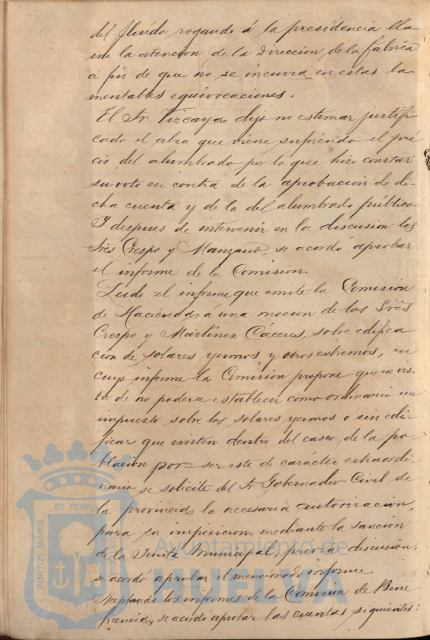 del fluido rogando á la presidencia lla
me la atencion de la Direccion de la fábrica
a fin de que no se incurra en estas la
mentables equivocaciones.
El Sr. Vizcaya dijo no estimar justifi
cado el alza que viene sufriendo el pre
cio del alumbrado por lo que hizo constar
su voto en contra de la aprobacion de di
cha cuenta y de la del alumbrado público.
Y despues de intervenir en la discusion los
Sres Crespo y Manzano, se acordo aprobar
el informe de la Comision.
Leido el informe que emite la Comision
de Hacienda a una mocion de los Sres
Crespo y Martinez Cáceres, sobre edifica
cion de solares yermos y otros extremos, en
cuyo informe la Comision propone que en vis
ta de no poderse establecer como ordinario un
impuesto sobre los solares yermos o sin edi
ficar que existen dentro del casco de la po
blacion por ser este de carácter extraordi
nario se solicite del Sr Gobernador Civil de
la provincia, la necesaria autorizacion,
para su imposicion, mediante la sancion
de la Junta Municipal, previa discusion,
se acordo aprobar el mencionado informe
Aceptando los informes de la Comision de Bene
ficencia, se acordo aprobar las cuentas siguientes:
PORTUS MARIS ET TERRÆ
Ayuntamiento de
HUELVA